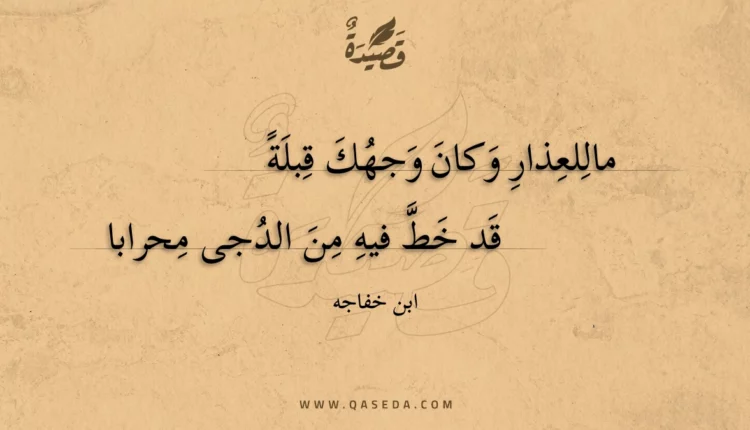 قَصِيدَةٌ
مالِلعِذارِ وَكانَ وَجهُكَ قِبلَةً
قَد خَطَّ فيهِ مِنَ الدُجى مِحرابا
ابن خفاجه
WWW.QASEDA.COM